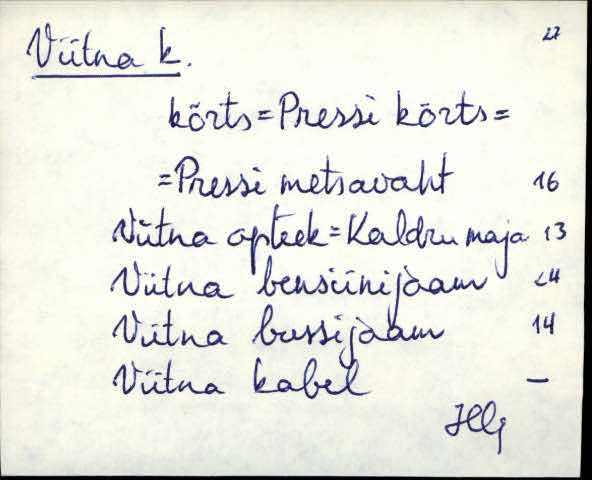 27
Viitna k.
kõrts=Pressi kõrts=
=Pressi metsavaht 16
Viitna apteek=Kaldru maja 13
Viitna bensiinijaam 24
Viitna bussijaam 14
Viitna kabel —